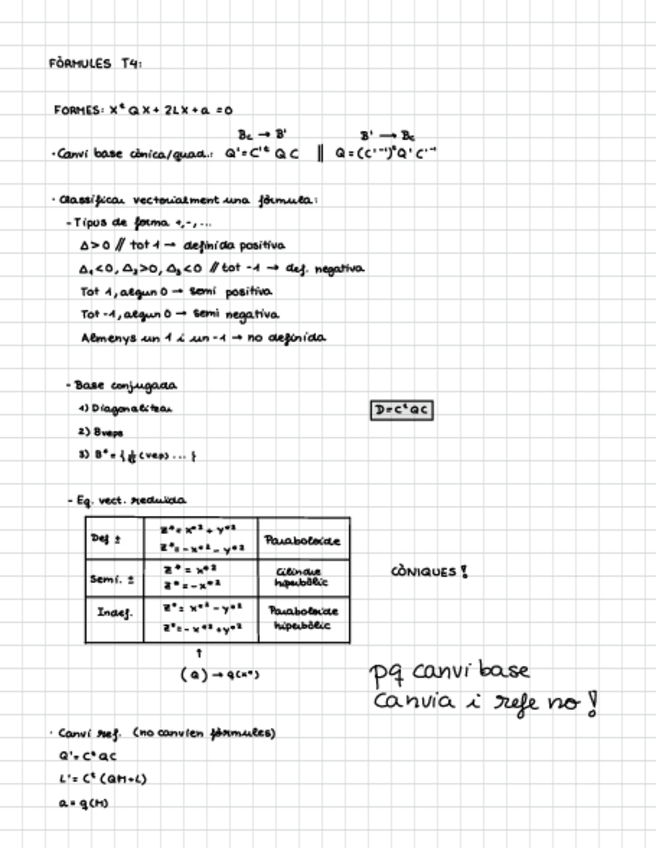 FÒRMULES T4:
FORMES: Xᵗ Q X + 2LX + a = 0
Bc → B' B' → Bc
· Canvi base cònica/quad.: Q' = C'ᵗ Q C || Q = (C'⁻¹)ᵗ Q' C'⁻¹
· Classificar vectorialment una fórmula:
- Tipus de forma +,-,...
Δ>0 // tot 1 → definida positiva
Δ₁<0, Δ₂>0, Δ₃<0 // tot -1 → def. negativa
Tot 1, algun 0 → semi positiva
Tot -1, algun 0 → semi negativa
Almenys un 1 i un -1 → no definida
- Base conjugada
1) Diagonalitzar D = Cᵗ Q C
2) Bveps
3) B* = { (vep) ... }
- Eq. vect. reduïda
Def ± z* = x*² + y*² Paraboloide
z* = -x*² - y*²
Semi. ± z* = x*² Cilindre
z* = -x*² hiperbòlic
CÒNIQUES!
Indef. z* = x*² - y*² Paraboloide
z* = -x*² + y*² hiperbòlic
↑
(Q) → q(x*)
pq canvi base
canvia i refe no!
· Canvi ref. (no canvien fórmules)
Q' = Cᵗ Q C
L' = Cᵗ (QM+L)
a = q(M)